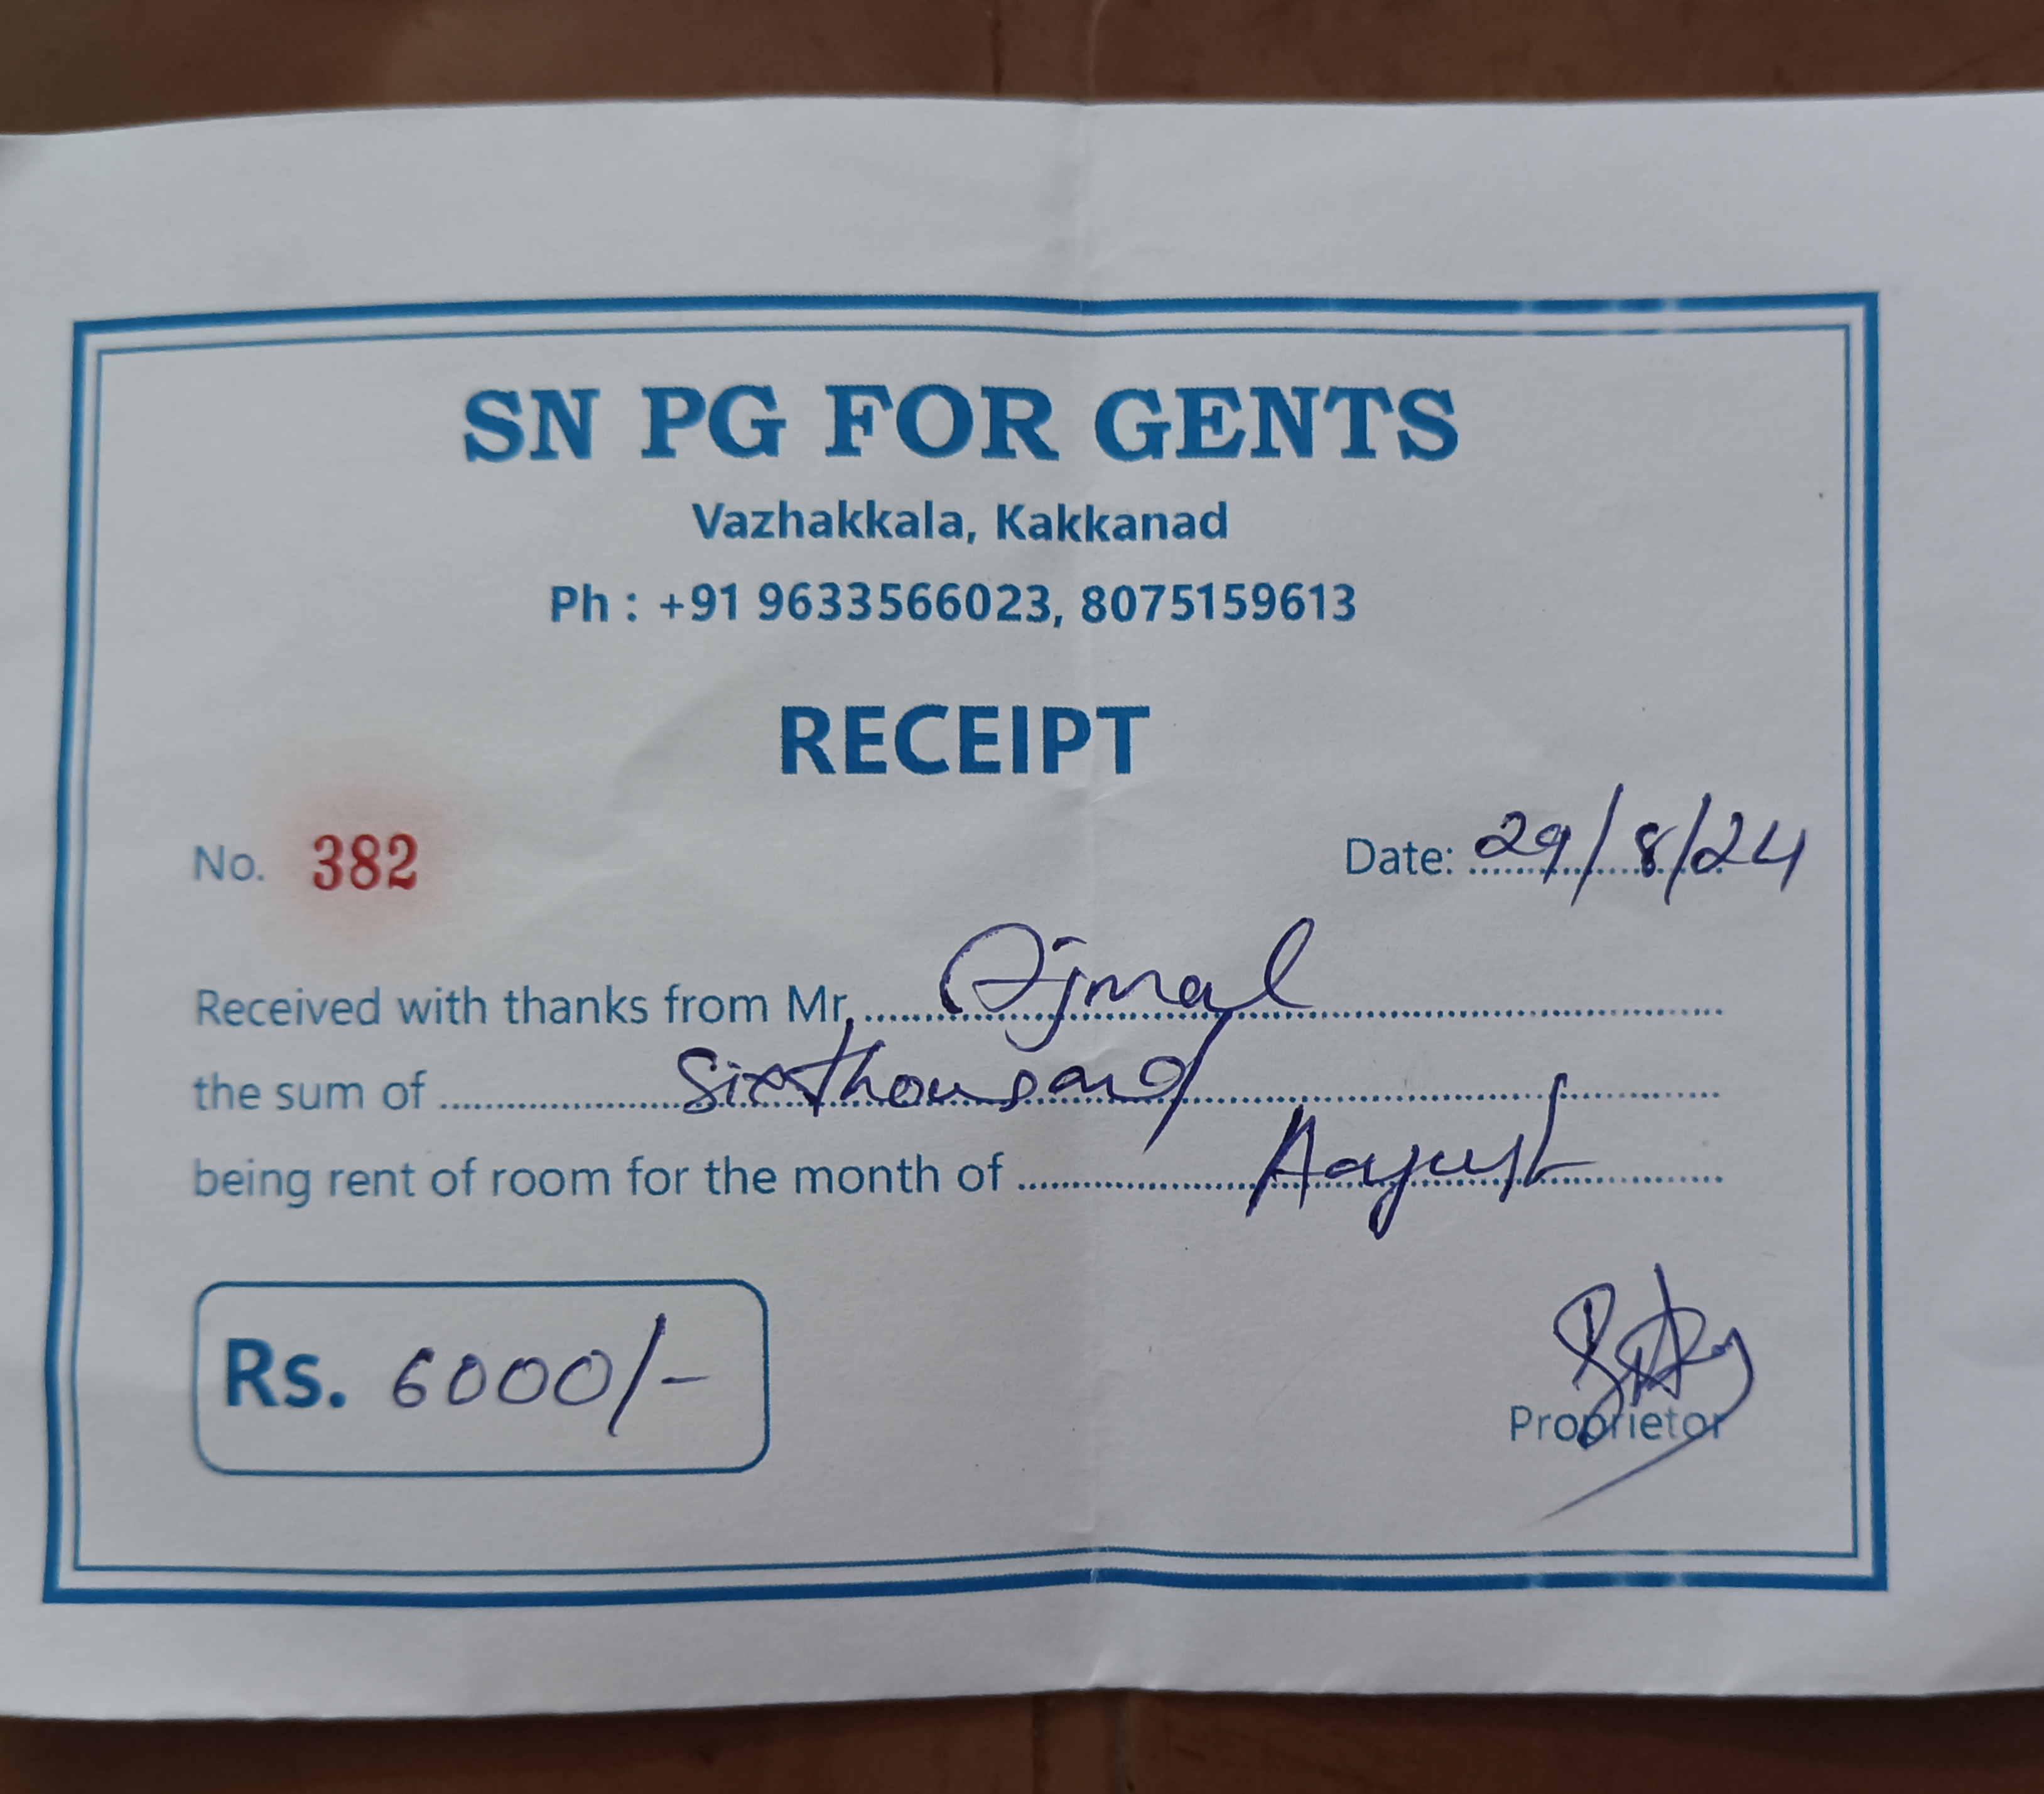 SN PG FOR GENTS
Vazhakkala, Kakkanad
Ph : +91 9633566023, 8075159613
RECEIPT
No. 382 Date: 29/8/24
Received with thanks from Mr. Ajmal
the sum of Sixthousand
being rent of room for the month of August
Rs. 6000/-
Proprietor